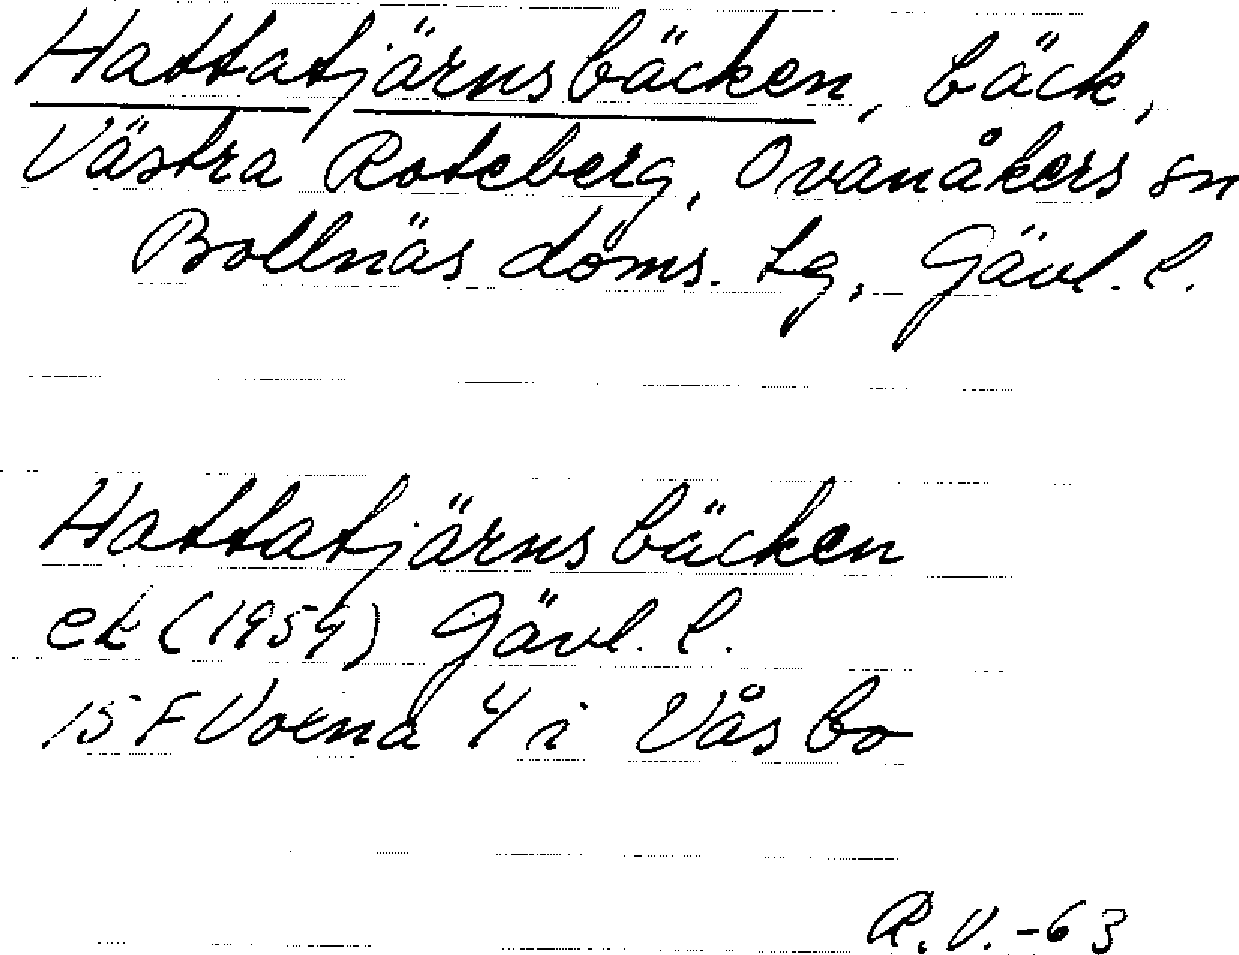 Hattatjärnsbäcken, bäck,
Västra Roteberg, Ovanåkers sn
Bollnäs doms. tg, Gävl. l.
Hattatjärnsbäcken
ek (1959) Gävl. l.
15 F Voxna 4 i Våsbo
R.V. -63